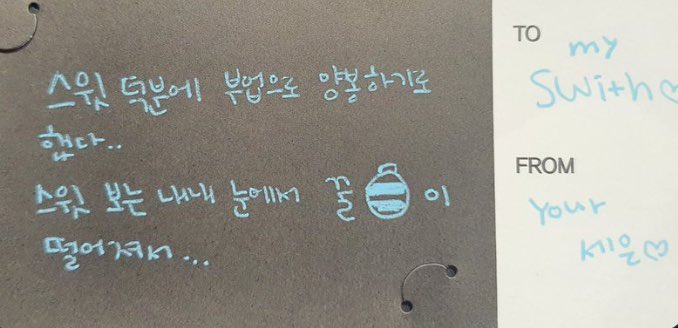 스윗 덕분에 부업으로 양봉하기로
했다..
스윗 보는 내내 눈에서 꿀 이
떨어져서...
TO
my
Swith♡
FROM
your
세은♡